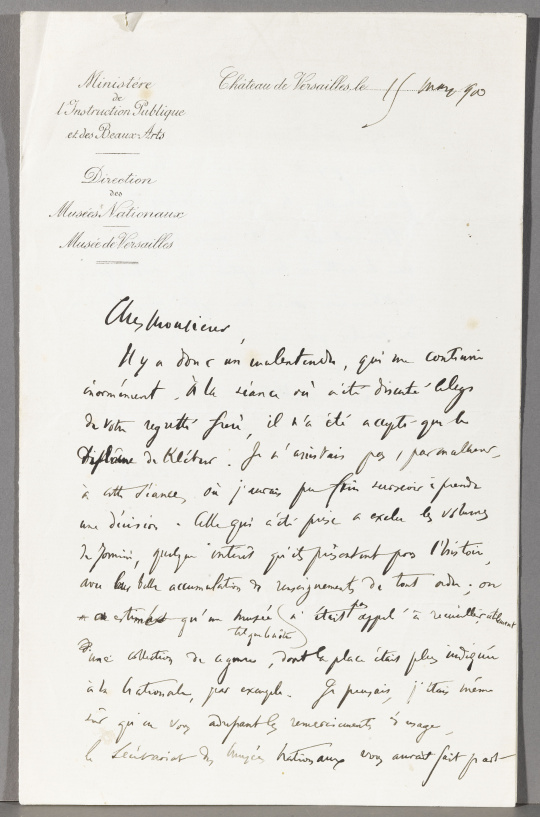 Ministère
de
l'Instruction Publique
et des Beaux-Arts
Direction
des
Musées Nationaux
Musée de Versailles
Château de Versailles, le 15 mars 900
Cher Monsieur,
Il y a donc un malentendu, qui me contrarie
énormément. À la séance où a été discuté le legs
de votre regretté frère, il n'a été accepté que le
diplôme de Kléber. Je n'assistais pas, par malheur,
à cette séance, où j'aurais pu faire surseoir à prendre
une décision. Celle qui a été prise a exclu les volumes
de Jomini, quelque intérêt qu'ils présentent pour l'histoire,
avec leur belle accumulation de renseignements de tout ordre ; on
a estimé qu'un musée n'était pas appelé à recueillir utilement
tel que le nôtre
une collection de ce genre, dont la place était plus indiquée
à la Nationale, par exemple. Je pensais, j'étais même
sûr qu'en vous adressant les remerciements d'usage,
le Secrétariat des Musées Nationaux vous aurait fait part